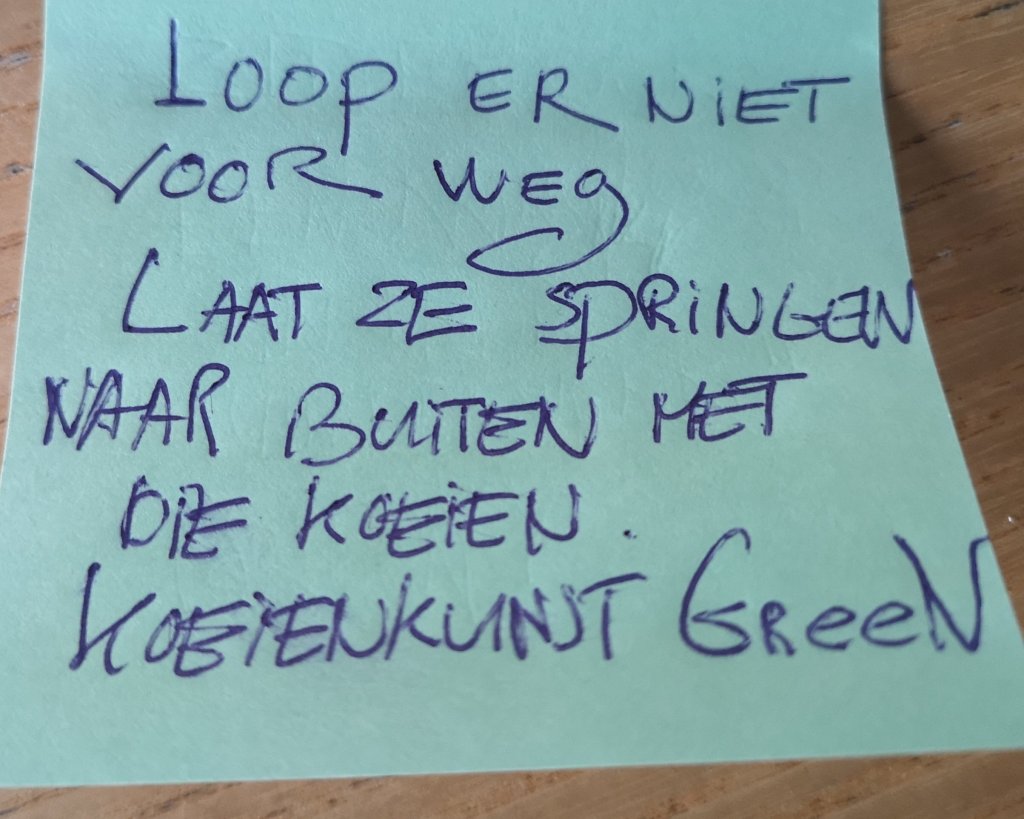 LOOP ER NIET
VOOR WEG
LAAT ZE SPRINGEN
NAAR BUITEN MET
DIE KOEIEN.
KOEIENKUNST GReeN